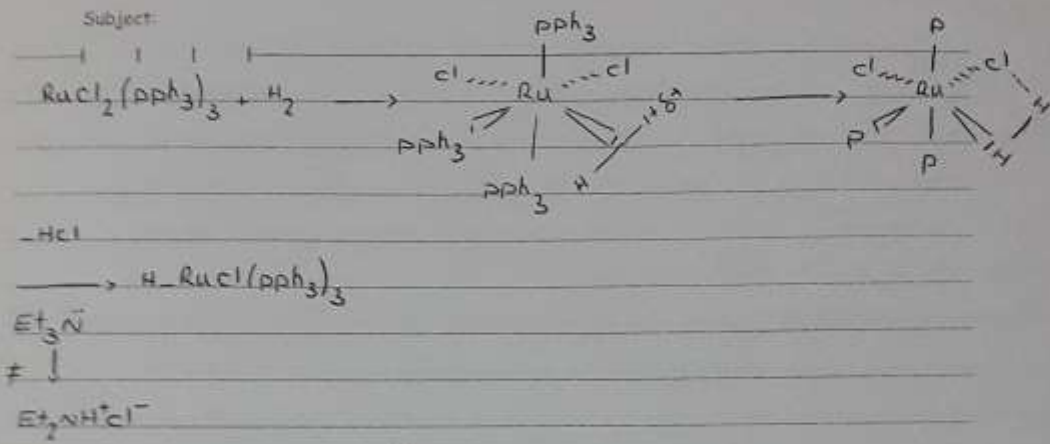 Subject:
RuCl2(pph3)3 + H2 ⟶ pph3 cl cl Ru pph3 pph3 H H δ+ ⟶ P cl cl Ru P P H H
-HCl
⟶ H-RuCl(pph3)3
Et3N̄
≠ ↓
Et2NH+Cl-